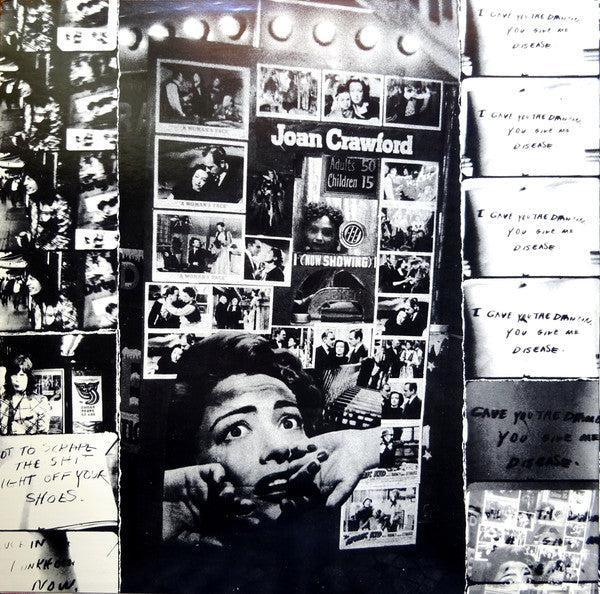 Joan Crawford
Adults 50
Children 15
(NOW SHOWING)
A WOMAN'S FACE
A WOMAN'S FACE
A WOMAN'S FACE
OT TO SCRAPE
THE SHIT
IGHT OFF YOUR
SHOES.
IN
NOW.
I GAVE YOU THE
YOU GIVE ME
DISEASE
I GAVE YOU THE
YOU GIVE ME
DISEASE
I GAVE YOU THE
YOU GIVE ME
DISEASE
I GAVE YOU THE
YOU GIVE ME
DISEASE.
GAVE YOU THE
YOU GIVE ME
DISEASE.